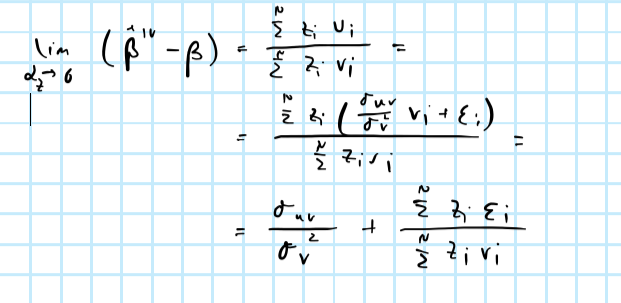 lim α_z→0 ( β̂^IV − β ) = Σ^N z_i u_i / Σ^N z_i v_i =
= Σ^N z_i ( σ_uv / σ_v^2 v_i + ε_i ) / Σ^N z_i v_i =
= σ_uv / σ_v^2 + Σ^N z_i ε_i / Σ^N z_i v_i